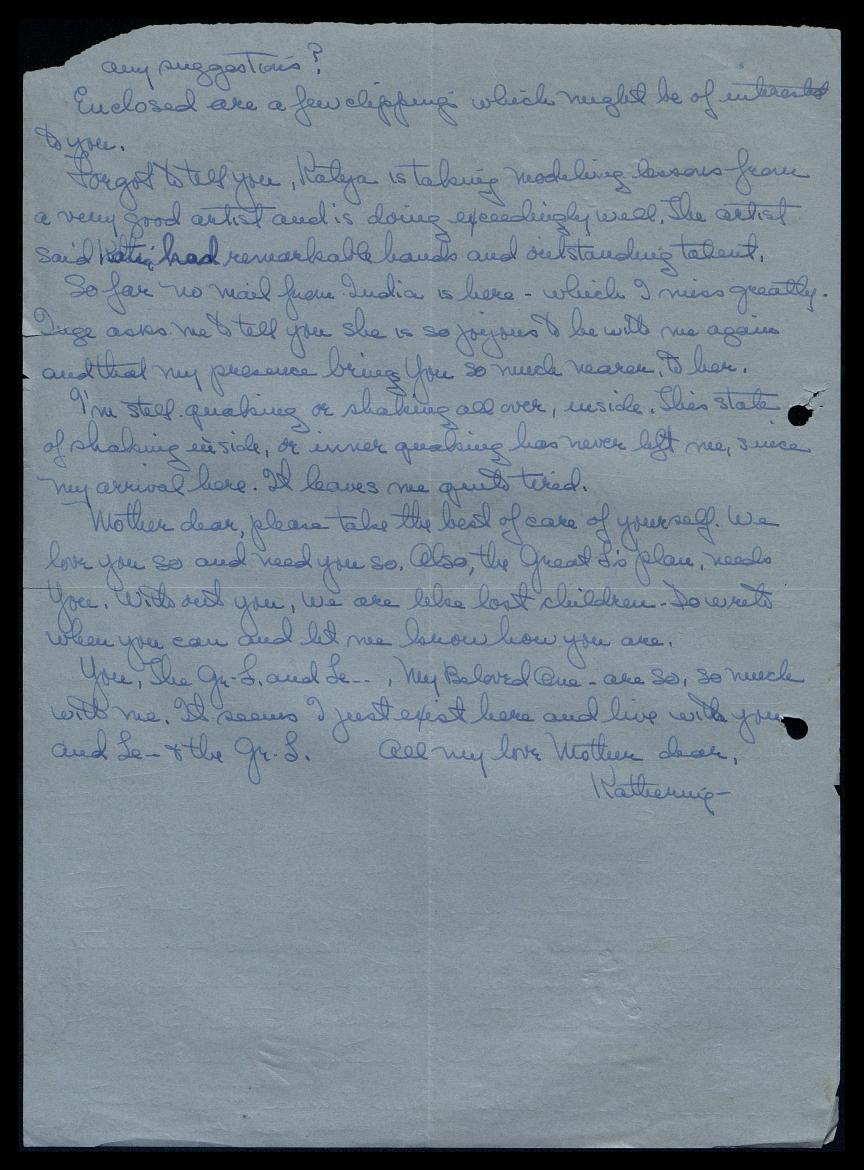 any suggestions?
Enclosed are a few clippings which might be of interest
to you.
Forgot to tell you, Katya is taking modeling lessons from
a very good artist and is doing exceedingly well. The artist
said had remarkable hands and outstanding talent.
So far no mail from India is here - which I miss greatly.
Inge asks me to tell you she is so joyous to be with me again
and that my presence brings You so much nearer to her.
I'm still quaking or shaking all over, inside. This state
of shaking inside, or inner quaking has never left me, since
my arrival here. It leaves me quite tired.
Mother dear, please take the best of care of yourself. We
love you so and need you so. Also, the Great L's plan, needs
You. Without you, we are like lost children - Do write
when you can and let me know how you are.
You, The Gr. L. and Le--, My Beloved One - are so, so much
with me. It seems I just exist here and live with you
and Le-- & the Gr. L. All my love Mother dear,
Katherine -